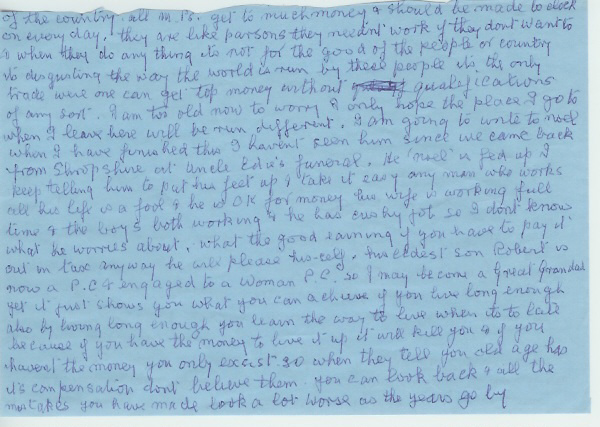 of the country. all M.Ps. get to much money & should be made to clock
on every day, they are like parsons they needn't work if they dont want to
& when they do any thing its not for the good of the people or country
its disgusting the way the world is run by these people its the only
trade were one can get top money without qualifications
of any sort. I am too old now to worry I only hope the place I go to
when I leave here will be run different. I am going to write to noel
when I have finished this I havent seen him since we came back
from Shropshire at Uncle Edie's funeral. He "noel" is fed up I
keep telling him to put his feet up & take it easy any man who works
all his life is a fool & he is OK for money his wife is working full
time & the boys both working & he has cushy job so I dont know
what he worries about, what the good earning if you have to pay it
out in tax anyway he will please his-self. his eldest son Robert is
now a P.C & engaged to a Woman P.C. so I may become a Great Grandad
yet it just shows you what you can achieve if you live long enough
also by living long enough you learn the way to live when its to late
because if you have the money to live it up it will kill you & if you
havent the money you only excist so when they tell you old age has
its compensation dont believe them. you can look back & all the
mistakes you have made look a lot worse as the years go by